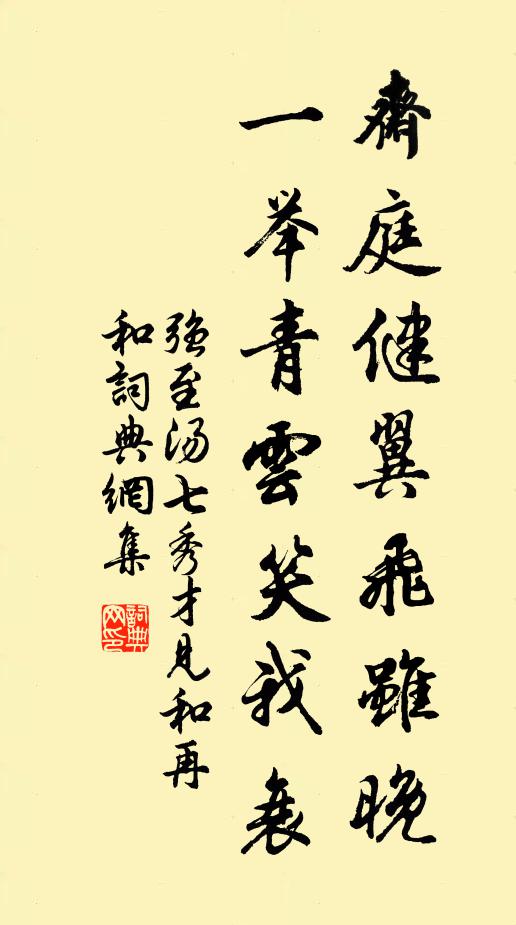 齋庭健翼飛雖晚
一举青雲笑我衰
強至湯七秀才見和再
和詞典網集
詞典
网印